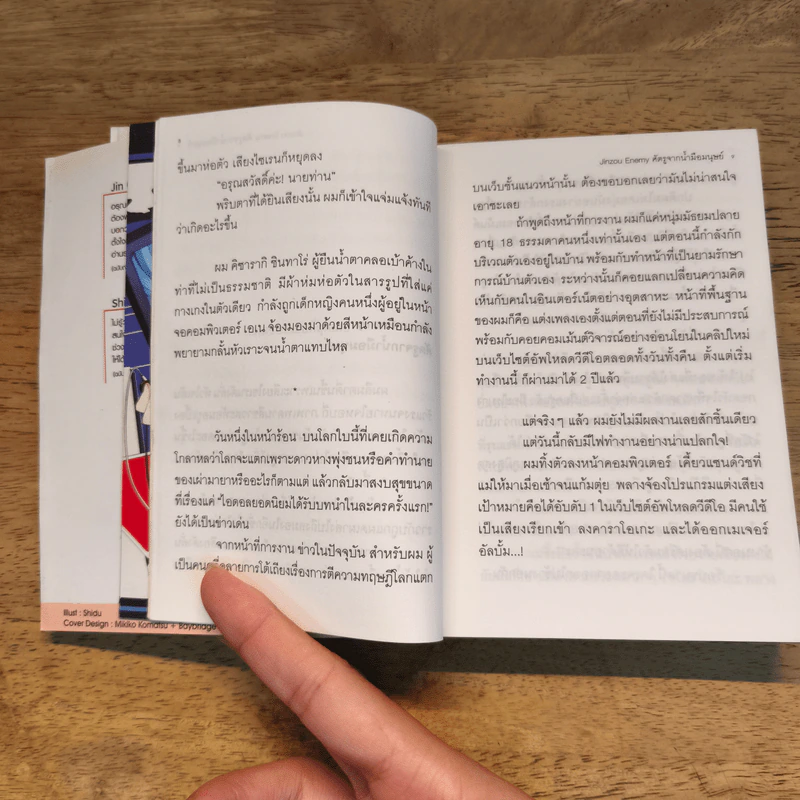 Jin
Illust : Shidu
Cover Design : Mikiko Komatsu + Baybridge
ขึ้นมาห่อตัว เสียงไซเรนก็หยุดลง
"อรุณสวัสดิ์ค่ะ! นายท่าน"
พริบตาที่ได้ยินเสียงนั้น ผมก็เข้าใจแจ่มแจ้งทันที
ว่าเกิดอะไรขึ้น
ผม คิซารากิ ชินทาโร่ ผู้ยืนน้ำตาคลอเบ้าค้างใน
ท่าที่ไม่เป็นธรรมชาติ มีผ้าห่มห่อตัวในสารรูปที่ใส่แค่
กางเกงในตัวเดียว กำลังถูกเด็กหญิงคนหนึ่งผู้อยู่ในหน้า
จอคอมพิวเตอร์ เอเน จ้องมองมาด้วยสีหน้าเหมือนกำลัง
พยายามกลั้นหัวเราะจนน้ำตาแทบไหล
วันหนึ่งในหน้าร้อน บนโลกใบนี้ที่เคยเกิดความ
โกลาหลว่าโลกจะแตกเพราะดาวหางพุ่งชนหรือคำทำนาย
ของเผ่ามายาหรืออะไรก็ตามแต่ แล้วกลับมาสงบสุขขนาด
ที่เรื่องแค่ "ไอดอลยอดนิยมได้รับบทนำในละครครั้งแรก!"
ยังได้เป็นข่าวเด่น
จากหน้าที่การงาน ข่าวในปัจจุบัน สำหรับผม ผู้
เป็นคนรายการโต้เถียงเรื่องการตีความทฤษฎีโลกแตก
Jinzou Enemy ศัตรูจากน้ำมือมนุษย์
บนเว็บชั้นแนวหน้านั้น ต้องขอบอกเลยว่ามันไม่น่าสนใจ
เอาซะเลย
ถ้าพูดถึงหน้าที่การงาน ผมก็แค่หนุ่มมัธยมปลาย
อายุ 18 ธรรมดาคนหนึ่งเท่านั้นเอง แต่ตอนนี้กำลังกัก
บริเวณตัวเองอยู่ในบ้าน พร้อมกับทำหน้าที่เป็นยามรักษา
การณ์บ้านตัวเอง ระหว่างนั้นก็คอยแลกเปลี่ยนความคิด
เห็นกับคนในอินเตอร์เน็ตอย่างอุตสาหะ หน้าที่พื้นฐาน
ของผมก็คือ แต่งเพลงเองตั้งแต่ตอนที่ยังไม่มีประสบการณ์
พร้อมกับคอยคอมเม้นต์วิจารณ์อย่างอ่อนโยนในคลิปใหม่
บนเว็บไซต์อัพโหลดวีดีโอตลอดทั้งวันทั้งคืน ตั้งแต่เริ่ม
ทำงานนี้ ก็ผ่านมาได้ 2 ปีแล้ว
แต่จริงๆ แล้ว ผมยังไม่มีผลงานเลยสักชิ้นเดียว
แต่วันนี้กลับมีไฟทำงานอย่างน่าแปลกใจ!
ผมทิ้งตัวลงหน้าคอมพิวเตอร์ เคี้ยวแซนด์วิชที่
แม่ให้มาเมื่อเช้าจนแก้มตุ่ย พลางจ้องโปรแกรมแต่งเสียง
เป้าหมายคือได้อับดับ 1 ในเว็บไซต์อัพโหลดวีดีโอ มีคนใช้
เป็นเสียงเรียกเข้า ลงคาราโอเกะ และได้ออกเมเจอร์
อัลบั้ม...!